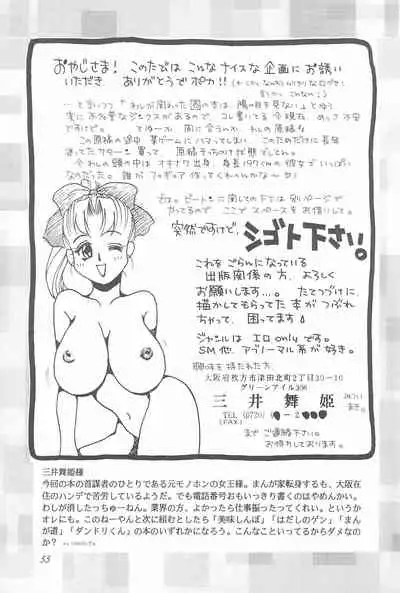 おやじさま！ このたびは こんなナイスな企画にお誘い
いただき ありがとうでポカ!!
…と言いつつ「わしが関わった の本は、陽の目を見ない」とゆう
実に不名誉なジンクスがあるので コレ書いてる今現在、めっさ不安
ですけど。 とゆーか 間に合うのか、わしの原稿!!
この原稿の途中、某ゲームにハマってしまい このためだけに長年
迷ってたサターン買って 原稿そっちのけ状態でしたわ。
今わしの頭の中は オキナワ出身、身長197cmの彼女でいっぱい
なのだった。 誰か フィギュア作ってくんねんかな〜
では。ピートンに関しての F.Tは 別いページで
やってるので ここで スペースをお借りして。
突然ですけど、シゴト下さい。
これをごらんになっている
出版関係の方、よろしく
お願いします…。たてつづけに、
描かしてもらってた本がつぶれ
ちゃって、困ってます
ジャンルは エロ only です。
SM他、アブノーマル系が好き。
興味を持たれた方、
大阪府枚方市津田北町2丁目30-10
グリーンアイル306
三井舞姫
TEL (0720) -2
(FAX)
まで ご連絡下さい。
お待ちしております。
三井舞姫様
今回の本の首謀者のひとりである元モノホンの女王様。まんが家転身するも、大阪在
住のハンデで苦労しているようだ。でも電話番号おもいっきり書くのはやめんかい。
わしが消したっちゅーねん。業界の方、よかったら仕事振ったってくれい。というか
オレにも。このねーやんと次に組むとしたら「美味しんぼ」「はだしのゲン」「まんが
道」「ダンドリくん」の本のいずれかになろう。こんなこといってるからダメなの
か？
55